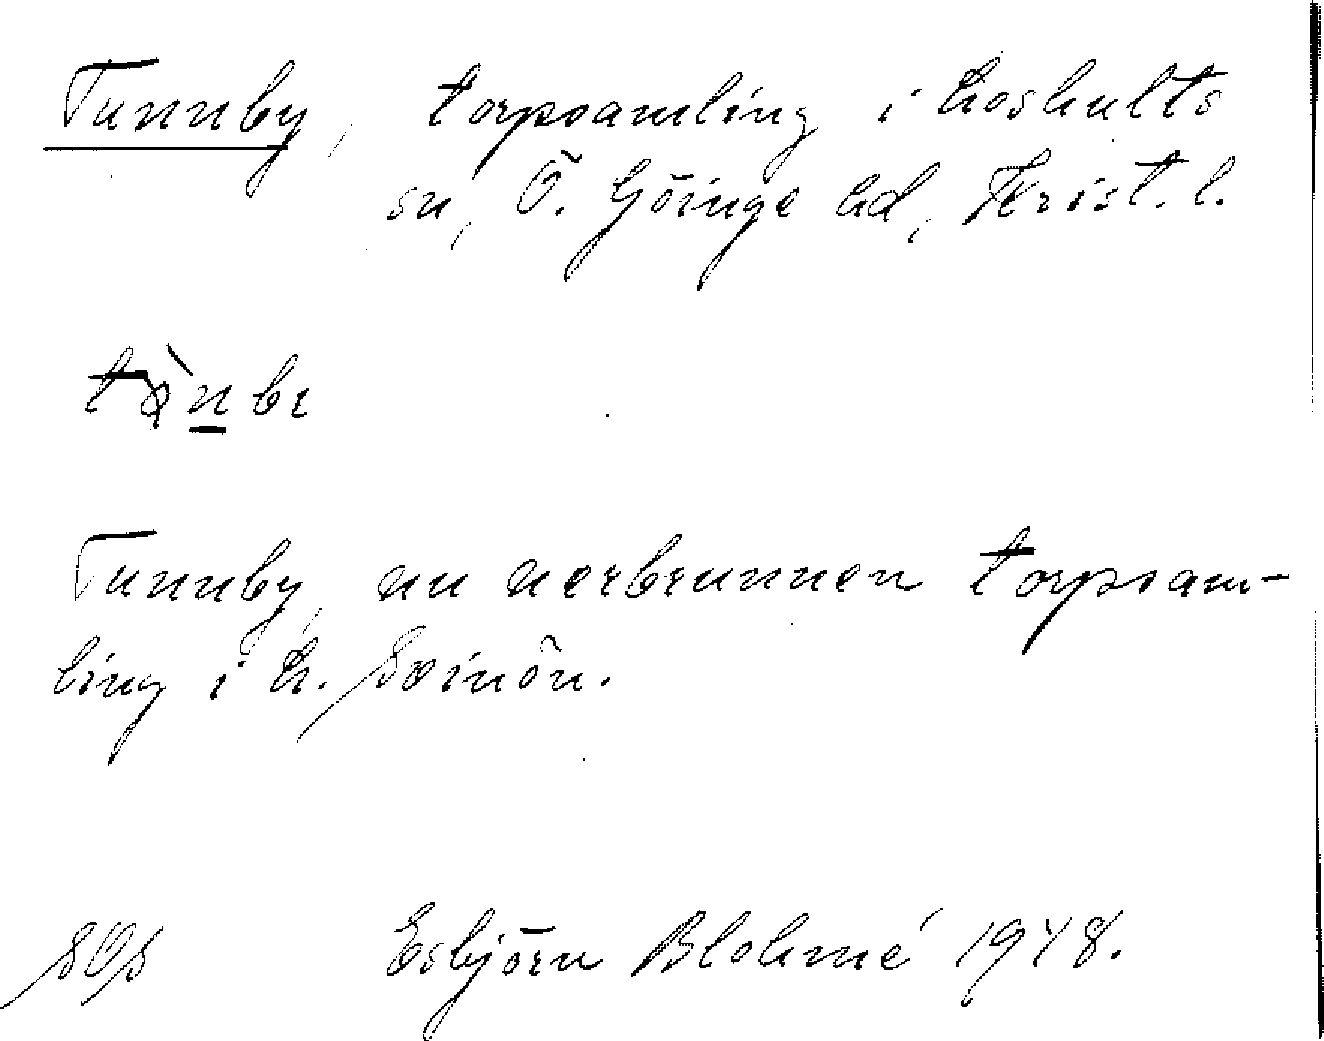 Tunnby, torpsamling i Loshults
sn, Ö. Göinge hd, Krist. l.
Tunnby, nu nerbrunnen torpsam-
ling i L. Svinön.
Esbjörn Blohmé 1948.